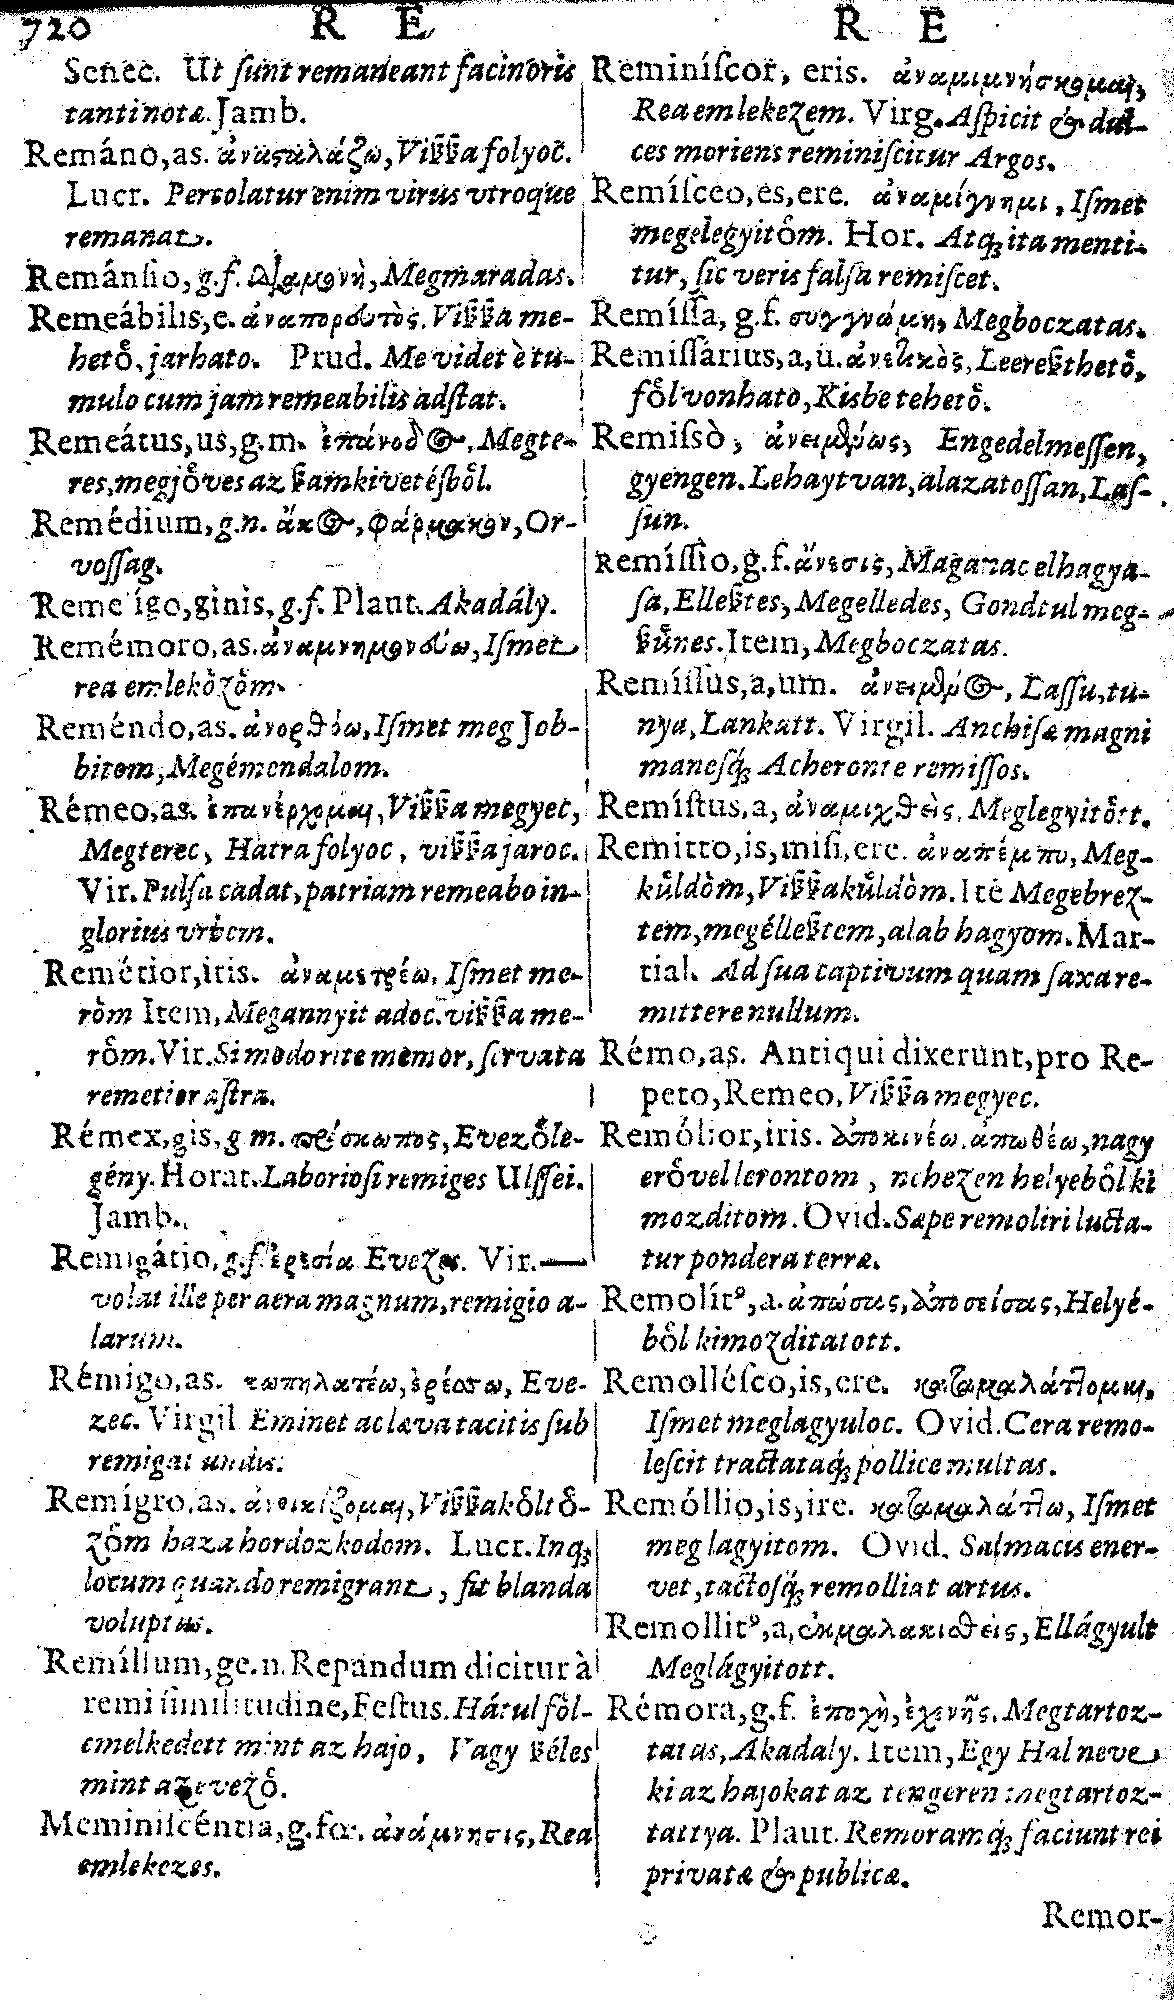 720 R E R E
Senec. Ut ſunt remaneant facinoris
tanti notæ. Jamb.
Remáno, as. ἀναςαλάζω, Viſſſa folyoc.
Lucr. Percolatur enim virus vtroque
remanat.
Remánſio, g.f. διαμονὴ, Megmaradas.
Remeábilis, e. ἀναπορδυτὸς. Viſſſa me-
hetoͤ, jarhato. Prud. Me videt è tu-
mulo cum jam remeabilis adſtat.
Remeátus, us, g.m. ἐπάνοδος, Megte-
res, megjoͤves az ſzamkivetéſboͤl.
Remédium, g.n. ἄκος, φάρμακον, Or-
voſſag.
Reme igo, ginis, g.f. Plaut. Akadály.
Remémoro, as. ἀναμνημονδύω, Iſmet
rea emlekoͤzoͤm.
Reméndo, as. ἀνορθόω, Iſmet meg Job-
bitom, Megémendalom.
Rémeo, as. ἐπανέρχομαι, Viſſſa megyec,
Megterec, Hatra folyoc, viſſſa jaroc.
Vir. Pulſa cadat, patriam remeabo in-
glorius vrbem.
Remétior, itis. ἀναμετρέω. Iſmet me-
roͤm Item, Megannyit adoc. viſſſa me-
roͤm. Vir. Si modo rite memor, ſervata
remetior aſtra.
Rémex, gis, g m. πρόσκωπος, Evezoͤle-
gény. Horat. Laborioſi remiges Ulſſei.
Jamb.
Remigátio, g.f. ἐρεσία Evezes. Vir. —
volat ille per aera magnum, remigio a-
larum.
Rémigo, as. κωπηλατέω, ἐρέσσω, Eve-
zec. Virgil Eminet ac læva tacitis ſub
remigat undis.
Remígro, as. ἀνοικίζομαι, Viſſſakoͤltoͤ-
zoͤm haza hordozkodom. Lucr. Inq;
locum quando remigrant, fit blanda
voluptas.
Remíllum, ge. n. Repandum dicitur à
remi ſimilitudine, Feſtus. Hátul foͤl-
emelkedett mint az hajo, Vagy ſzéles
mint az evezoͤ.
Meminiſcéntia, g.fœ. ἀνάμνησις, Rea
emlekezes.
Reminíſcor, eris. ἀναμιμνήσκομαι,
Rea emlekezem. Virg. Aſpicit & dul-
ces moriens reminiſcitur Argos.
Remíſceo, es, ere. ἀναμίγνημι, Iſmet
megelegyitoͤm. Hor. Atq; ita menti-
tur, ſic veris falſa remiſcet.
Remíſſa, g.f. συγγνώμη, Megboczatas.
Remiſſárius, a, ū. ἀνετικὸς, Leereſzthetoͤ,
foͤl vonhato, Kisbe tehetoͤ.
Remiſsò, ἀνειμδμως, Engedelmeſſen,
gyengen. Lehaytvan, alazatoſſan, Laſ-
ſun.
Remíſſio, g.f. ἄνεσις, Maganac elhagya-
ſa, Elleſztes, Megelledes, Gondtul meg-
ſzuͤnes. Item, Megboczatas.
Remíſſus, a, um. ἀνειμδμος, Laſſu, tu-
nya, Lankatt. Virgil. Anchiſæ magni
maneſq; Acheronte remiſſos.
Remíſtus, a, ἀναμιχθεὶς. Meglegyitoͤtt.
Remitto, is, miſi, ere. ἀναπέμπω, Meg-
kuͤldoͤm, Viſſſakuͤldoͤm. Itē Megebrez-
tem, megélleſztem, alab hagyom. Mar-
tial. Ad ſua captivum quam ſaxa re-
mittere nullum.
Rémo, as. Antiqui dixerunt, pro Re-
peto, Remeo, Viſſſa megyec.
Remólior, iris. ὑποκινέω. ἀπωθέω, nagy
eroͤvel lerontom, nehezen helyeboͤl ki
mozditom. Ovid. Sæpe remoliri lucta-
tur pondera terræ.
Remolit⁹, a. ἀπώσας, ὑποσείσας, Helyé-
boͤl kimozditatott.
Remolléſco, is, ere. καταμαλάττομαι,
Iſmet meglagyuloc. Ovid. Cera remo-
leſcit tractataq; pollice multas.
Remóllio, is, ire. καταμαλάττω, Iſmet
meglagyitom. Ovid. Salmacis ener-
vet, tactoſq; remolliat artus.
Remollit⁹, a, ἐκμαλακισθεὶς, Ellágyult
Meglágyitott.
Rémora, g.f. ἐποχὴ, ἐχενηῒς. Megtartoz-
tatas, Akadaly. Item, Egy Hal neve
ki az hajokat az tengeren megtartoz-
tattya. Plaut. Remoramq; faciunt rei
privatæ & publicæ.
Remor-